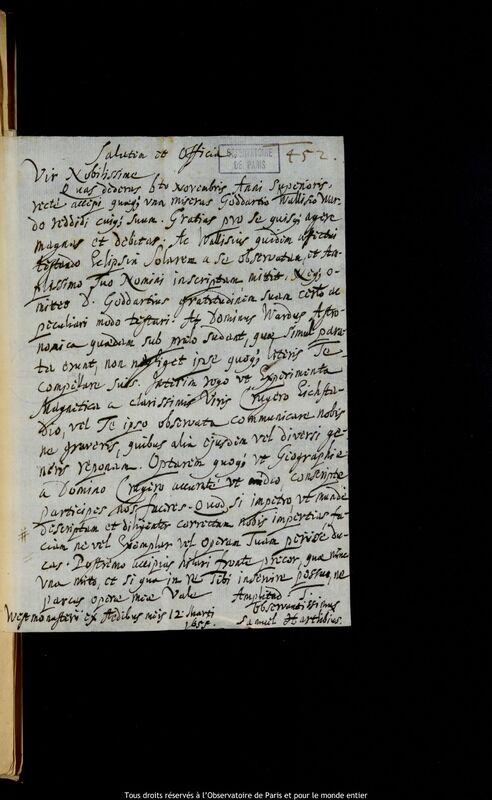 Salutem et Officia
OBSERVATOIRE
DE PARIS
452.
Vir Nobilissime
Quas dederas 6to Novembris Anni Superioris,
recte accepi quasq; una miseras Goddartio Wallisio War-
do reddidi cuiq; suam. Gratias pro se quisq; agere
magnas et debitas. Ac Wallisius quidem
testando Eclipsin Solarem a se observatam, et Am-
plissimo Tuo Nomini inscriptam mittit. o-
mittet D. Goddartius gratitudinem Suam certo ac
peculiari modo testari. At Dominus Wardus Astro-
nomica quaedam sub praelo sudant, quae simul para-
ta erunt, non negliget ipse quoq; literis Te
compellare suis. Interim rogo ut Experimenta
Magnetica a clarissimis Viris Crugero Eichsta-
dio, vel Te ipso observata communicare nobis
ne graveris, quibus alia ejusdem vel diversi ge-
neris reponam. Optarem quoq; ut Geographiae
a Domino Crugero accurate ut audio conscriptae
participes nos faceres. Quod si impetro ut mundè
descriptam et diligenter correctam nobis impertias fa-
ciam ne vel Exemplar vel operam Tuam perijsse du-
cas. Postremo accipias hilari fronte precor, quae nunc
una mitto, et si qua in re Tibi inservire possum, ne
parcas operae meae Vale Amplitud. T.
Observantissimus
Westmonasterii ex Aedibus meis 12 Martij
1655. Samuel Hartlibius.
Tous droits réservés à l'Observatoire de Paris et pour le monde entier